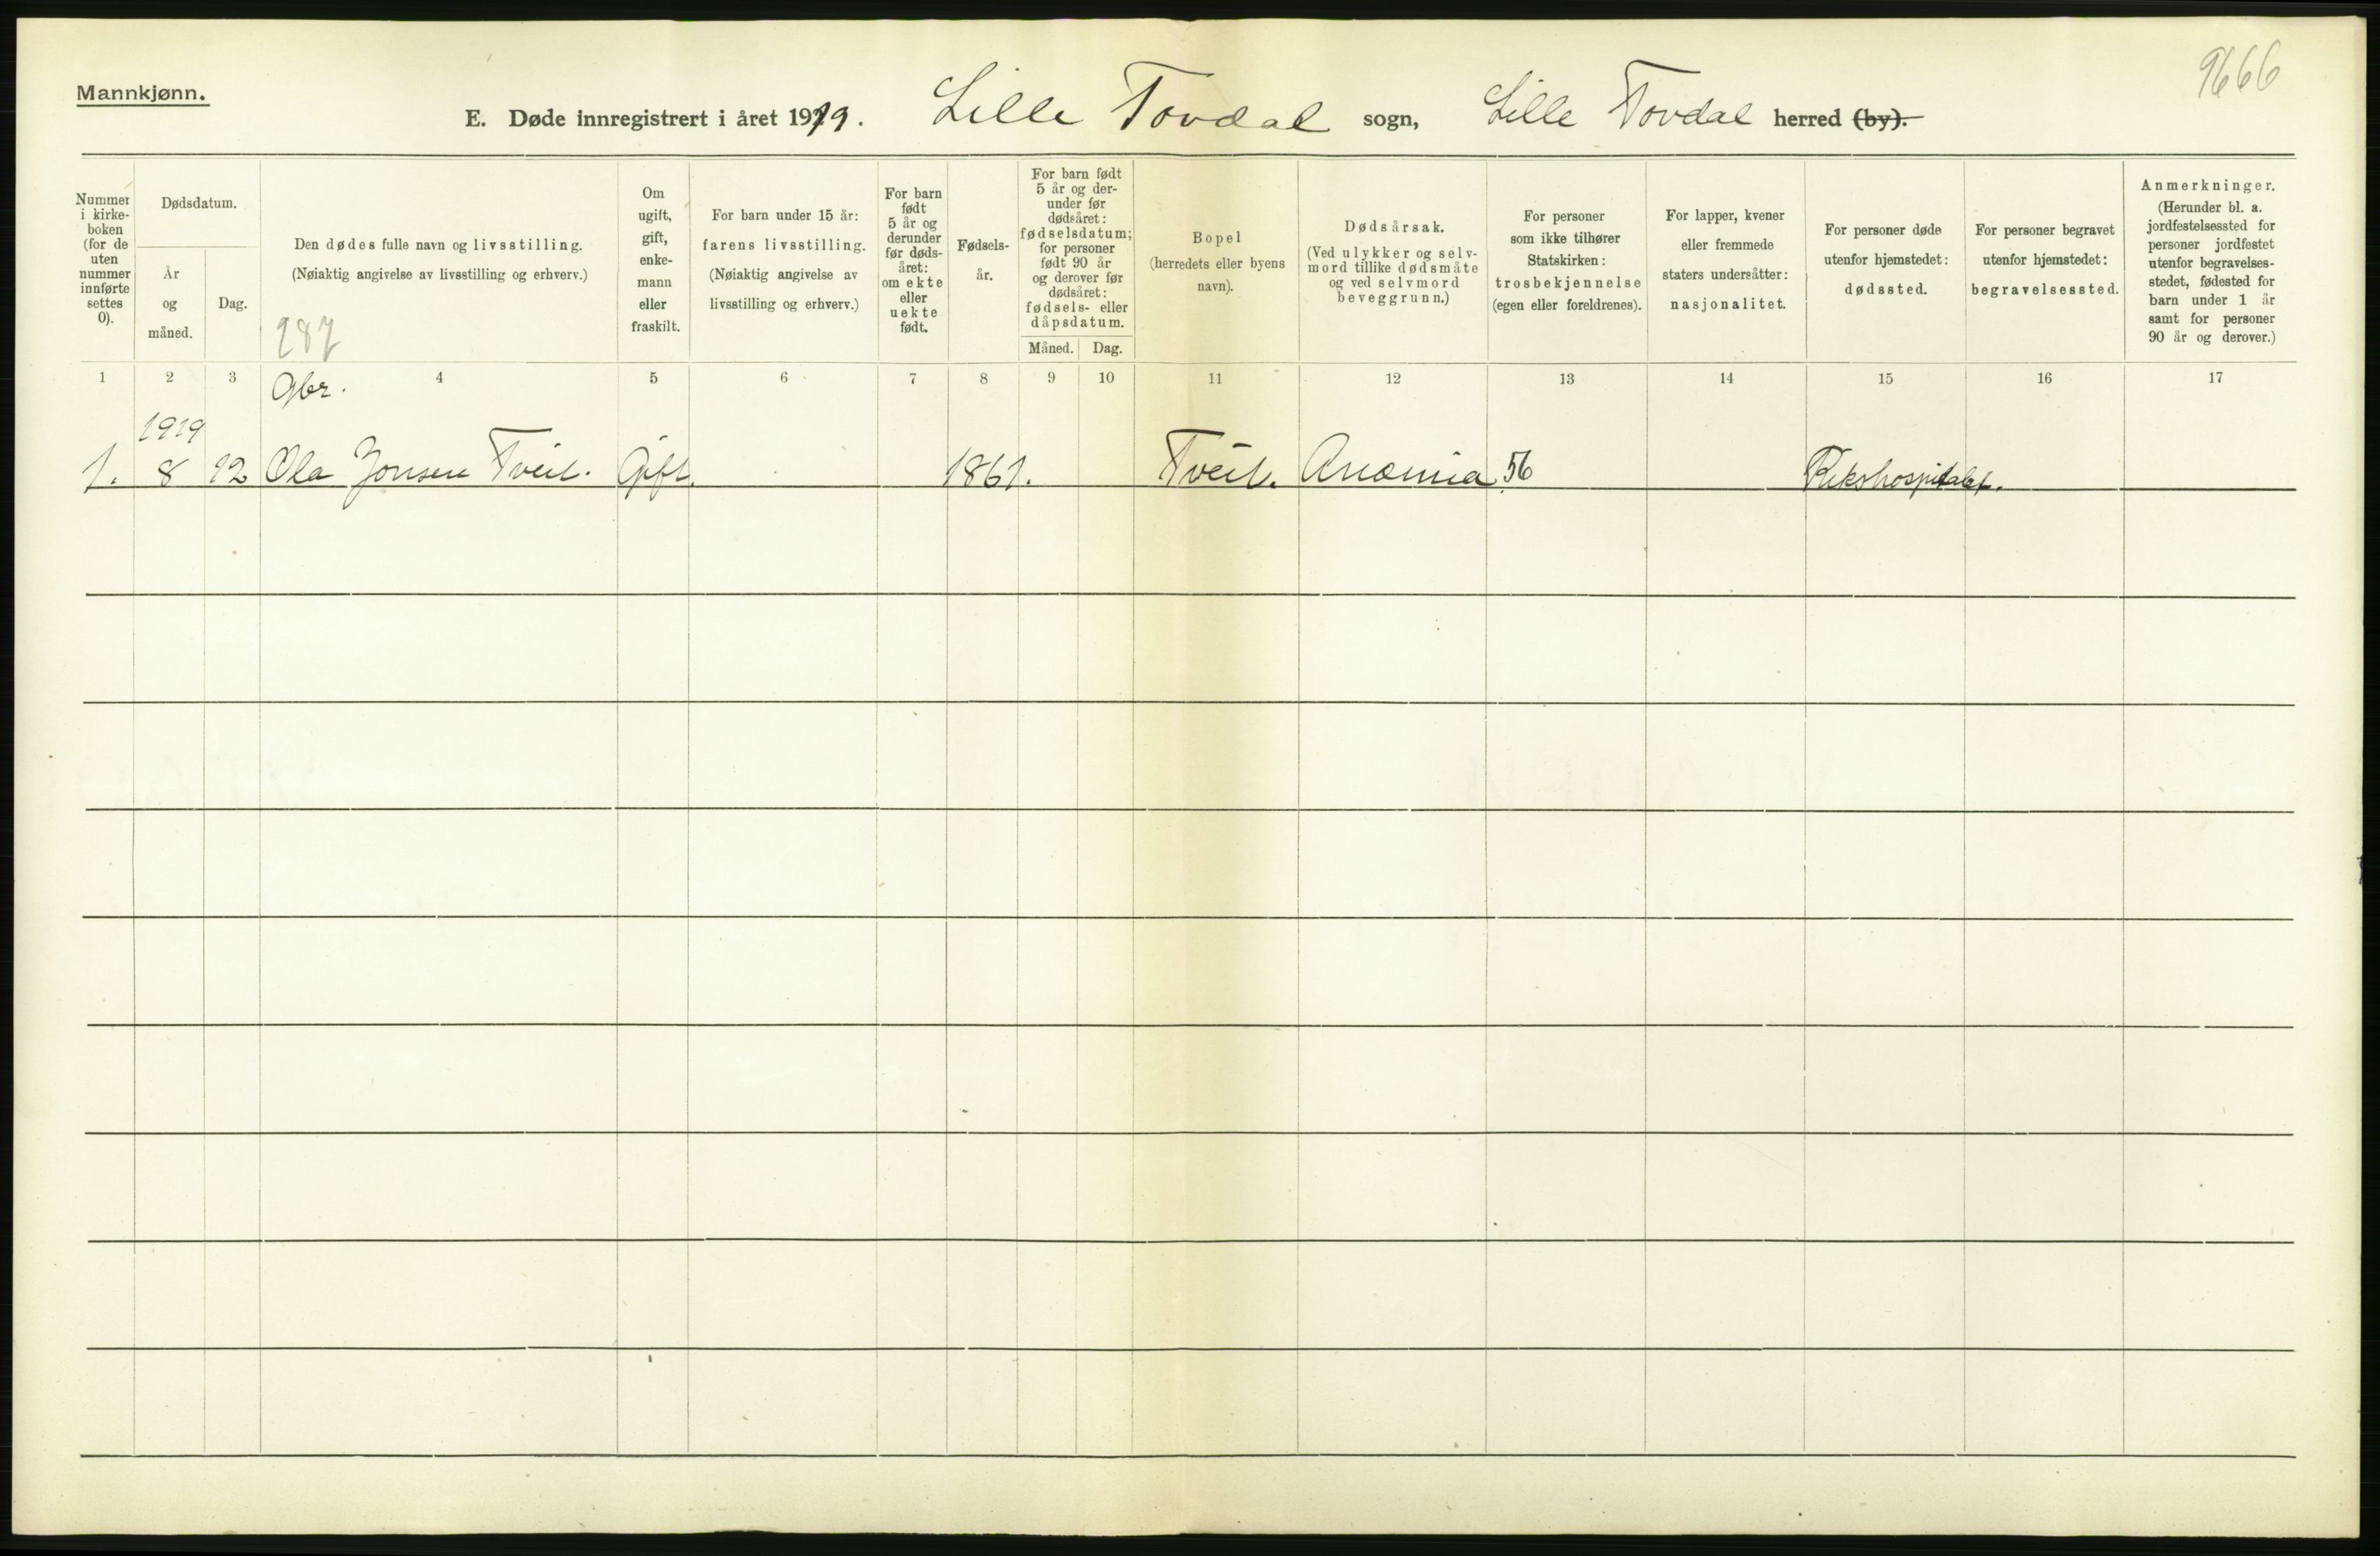 9666
Mannkjønn.
E. Døde innregistrert i året 1919. Lille Tovdal sogn, Lille Tovdal herred (by).
Nummer i kirke-boken (for de uten nummer innførte settes 0).
Dødsdatum.
År og måned.
Dag.
Den dødes fulle navn og livsstilling.
(Nøiaktig angivelse av livsstilling og erhverv.)
287
Om ugift, gift, enke-mann eller fraskilt.
For barn under 15 år:
farens livsstilling.
(Nøiaktig angivelse av
livsstilling og erhverv.)
For barn født 5 år og derunder før døds-året: om ekte eller uekte født.
Fødsels-år.
For barn født 5 år og der-under før dødsåret: fødselsdatum; for personer født 90 år og derover før dødsåret: fødsels- eller dåpsdatum.
Måned. Dag.
Bopel
(herredets eller byens
navn).
Dødsårsak.
(Ved ulykker og selv-
mord tillike dødsmåte
og ved selvmord
beveggrunn.)
For personer
som ikke tilhører
Statskirken:
trosbekjennelse
(egen eller foreldrenes).
For lapper, kvener
eller fremmede
staters undersåtter:
nasjonalitet.
For personer døde
utenfor hjemstedet:
dødssted.
For personer begravet
utenfor hjemstedet:
begravelsessted.
Anmerkninger.
(Herunder bl. a.
jordfestelsessted for
personer jordfestet
utenfor begravelses-
stedet, fødested for
barn under 1 år
samt for personer
90 år og derover.)
1 2 3 4 5 6 7 8 9 10 11 12 13 14 15 16 17
Gbr.
1919
1. 8 12 Ola Jonsen Tveit. Gift. 1861. Tveit. Anæmia 56 Rikshospitalet.